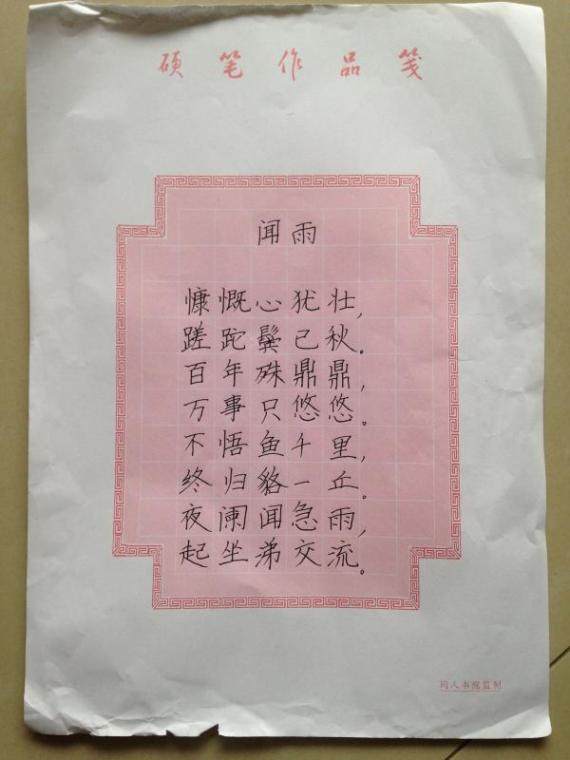 硕笔作品笺
闻雨
慷慨心犹壮,
蹉跎鬓已秋。
百年殊鼎鼎,
万事只悠悠。
不悟鱼千里,
终归貉一丘。
夜阑闻急雨,
起坐涕交流。
同人书院监制